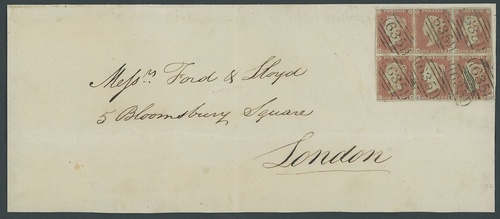 Messrs Ford & Lloyd
5 Bloomsbury Square
London